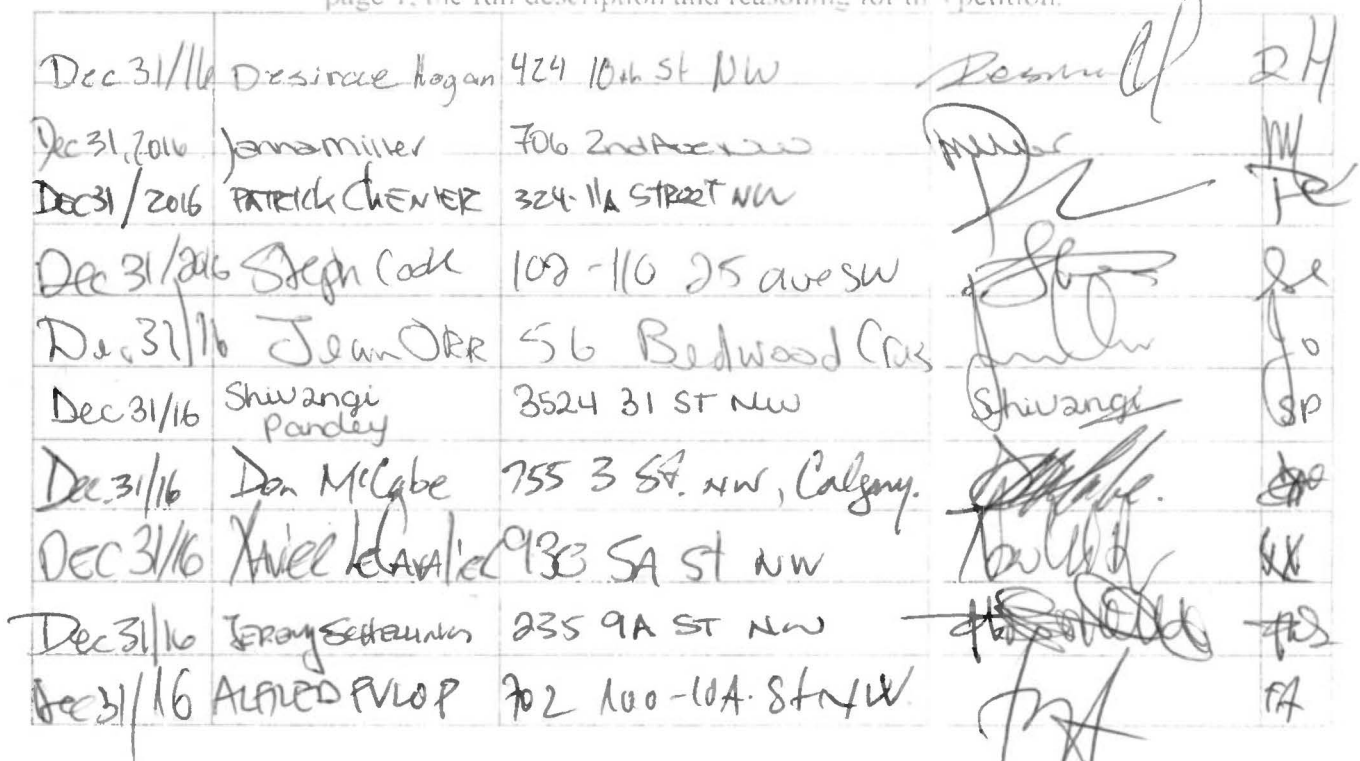 page 1, the full description and reasoning for the petition.
Dec 31/16 Desiraee Hogan 424 10th St NW DH
Dec 31, 2016 Janna miller 706 2nd Ave NW Miller M
DEC 31/2016 PATRICK CHENIER 324-11A STREET NW PC
Dec 31/2016 Steph Cook 102-110 25 ave SW SC
Dec. 31/16 Jean ORR 56 Bedwood Cres JO
Dec 31/16 Shivangi 3524 31 ST NW Shivangi SP
Pandey
Dec. 31/16 Don McCabe 755 3 St. NW, Calgary.
DEC 31/16 XAVIER LECAVALIER 930 5A St NW
Dec 31/16 JEREMY 235 9A ST NW
Dec 31/16 ALFRED FULOP 702 100-10A. St NW FA